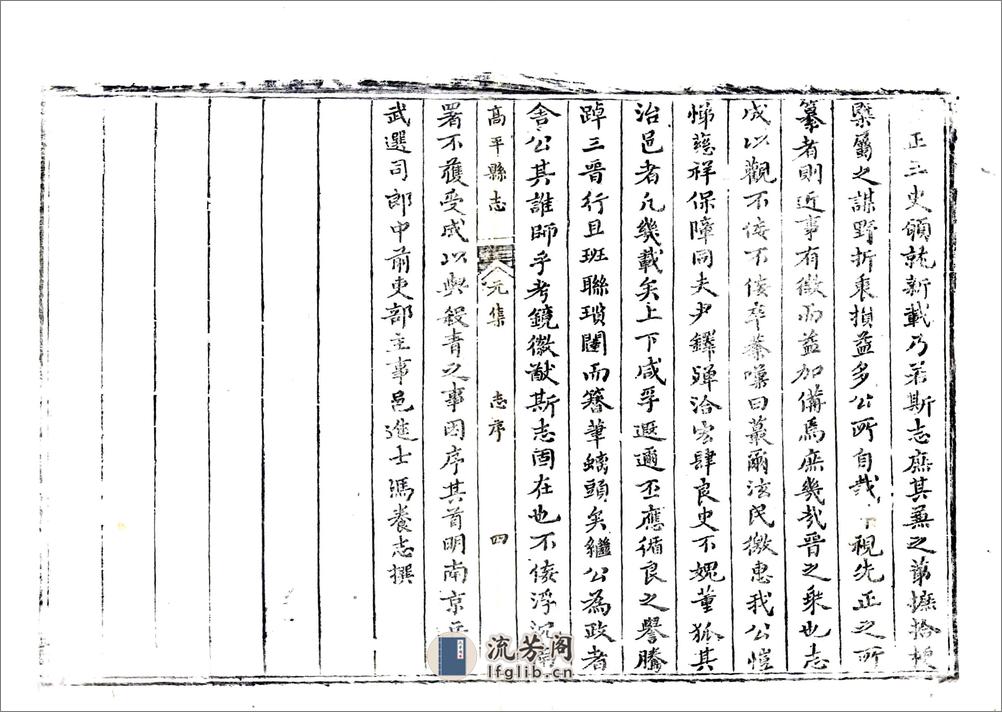 正二史頒就新載乃若斯志庶其兼之第摭拾梗
槩屬之謀野折衷損益多公所自裁下視先正之所
纂者則近事有徵而益加備焉庶幾哉晉之乗也志
成以觀不佞不佞卒業嘆曰蕞爾泫民徼惠我公愷
悌慈祥保障同夫尹鐸殫洽宏肆良史不媿董狐其
治邑者凡幾載矣上下咸孚遐邇丕應循良之譽騰
踔三晉行且班聯瑣闥而簪筆螭頭矣繼公為政者
舎公其誰師乎考鏡徽猷斯志固在也不佞浮沉
高平縣志 元集 志序 四
署不獲受成以與殺青之事因序其首明南京兵
武選司郎中前吏部主事邑進士馮養志撰
流芳阁
lfglib.cn